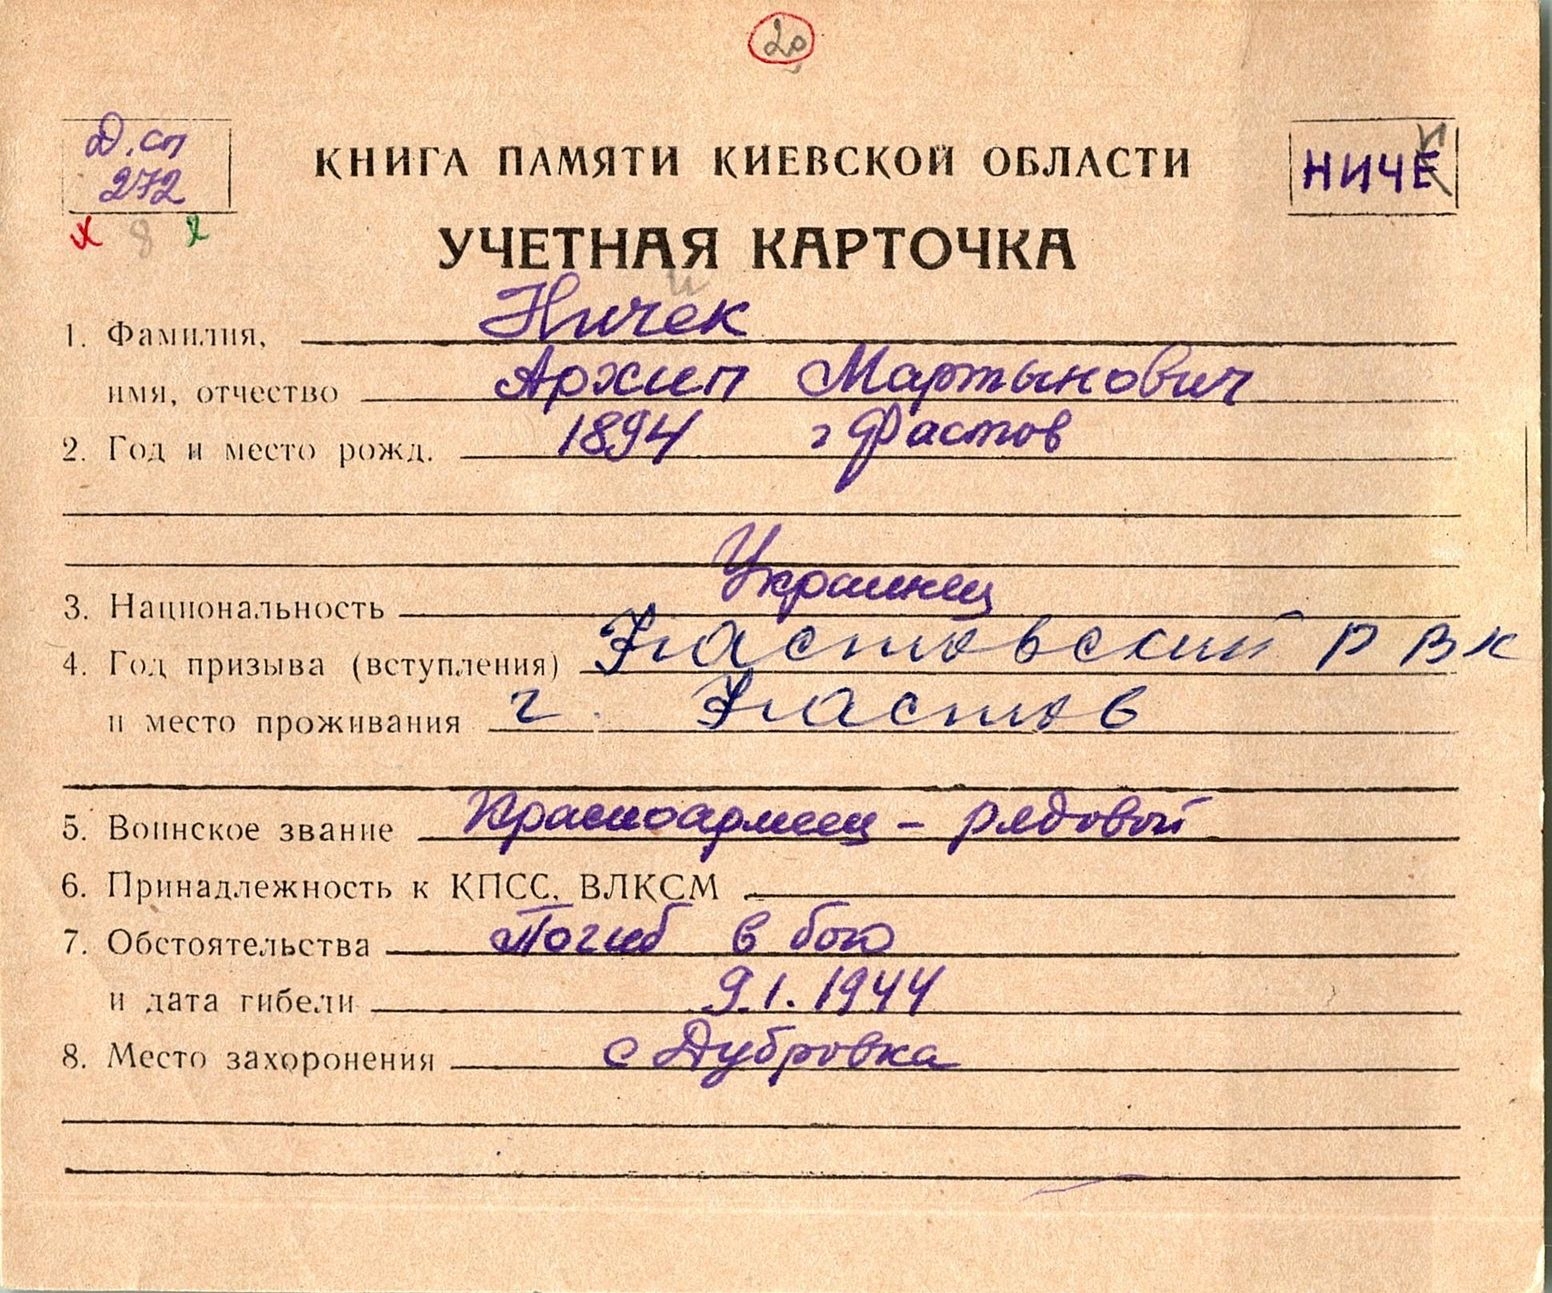 20
Д. сп
272
КНИГА ПАМЯТИ КИЕВСКОЙ ОБЛАСТИ
НИЧЕ
И
УЧЕТНАЯ КАРТОЧКА
х 8
и
1. Фамилия, Ничек
имя, отчество Архип Мартынович
2. Год и место рожд. 1894 г Фастов
3. Национальность Украинец
4. Год призыва (вступления) Фастовский РВК
и место проживания г. Фастов
5. Воинское звание Красноармеец – рядовой
6. Принадлежность к КПСС, ВЛКСМ
7. Обстоятельства Погиб в бою
и дата гибели 9.1.1944
8. Место захоронения с Дубровка